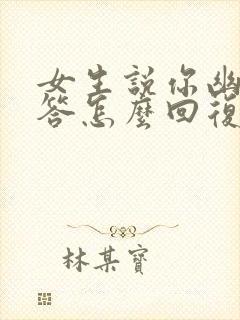 女生説你幽
答怎麼回復
林某寶